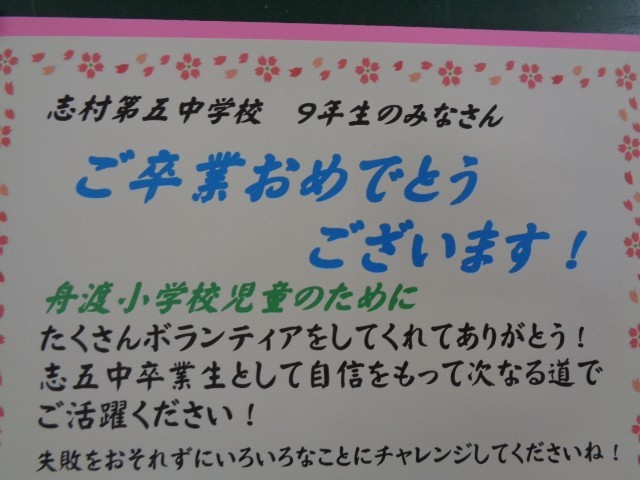 志村第五中学校　9年生のみなさん
ご卒業おめでとう
ございます！
舟渡小学校児童のために
たくさんボランティアをしてくれてありがとう！
志五中卒業生として自信をもって次なる道で
ご活躍ください！
失敗をおそれずにいろいろなことにチャレンジしてくださいね！